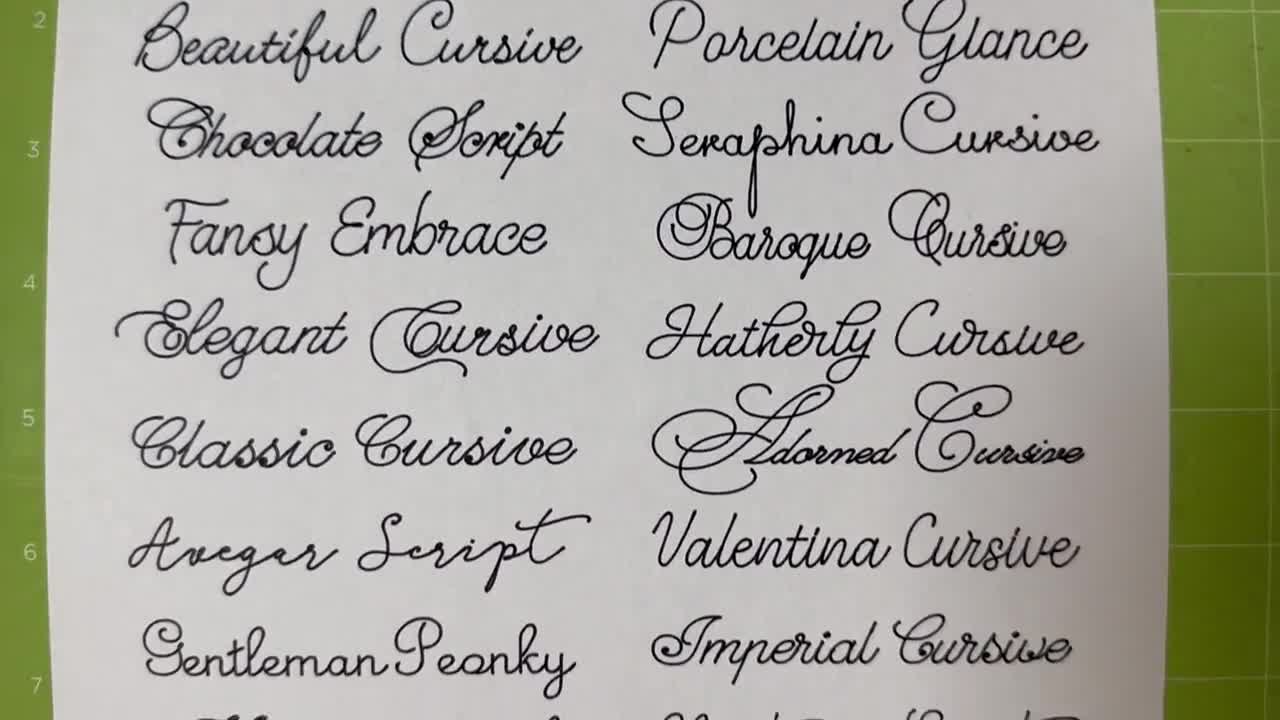 2
Beautiful Cursive Porcelain Glance
3
Chocolate Script Seraphina Cursive
Fansy Embrace Baroque Cursive
4
Elegant Cursive Hatherly Cursive
5
Classic Cursive Adorned Cursive
6
Avegar Script Valentina Cursive
Gentleman Peonky Imperial Cursive
7